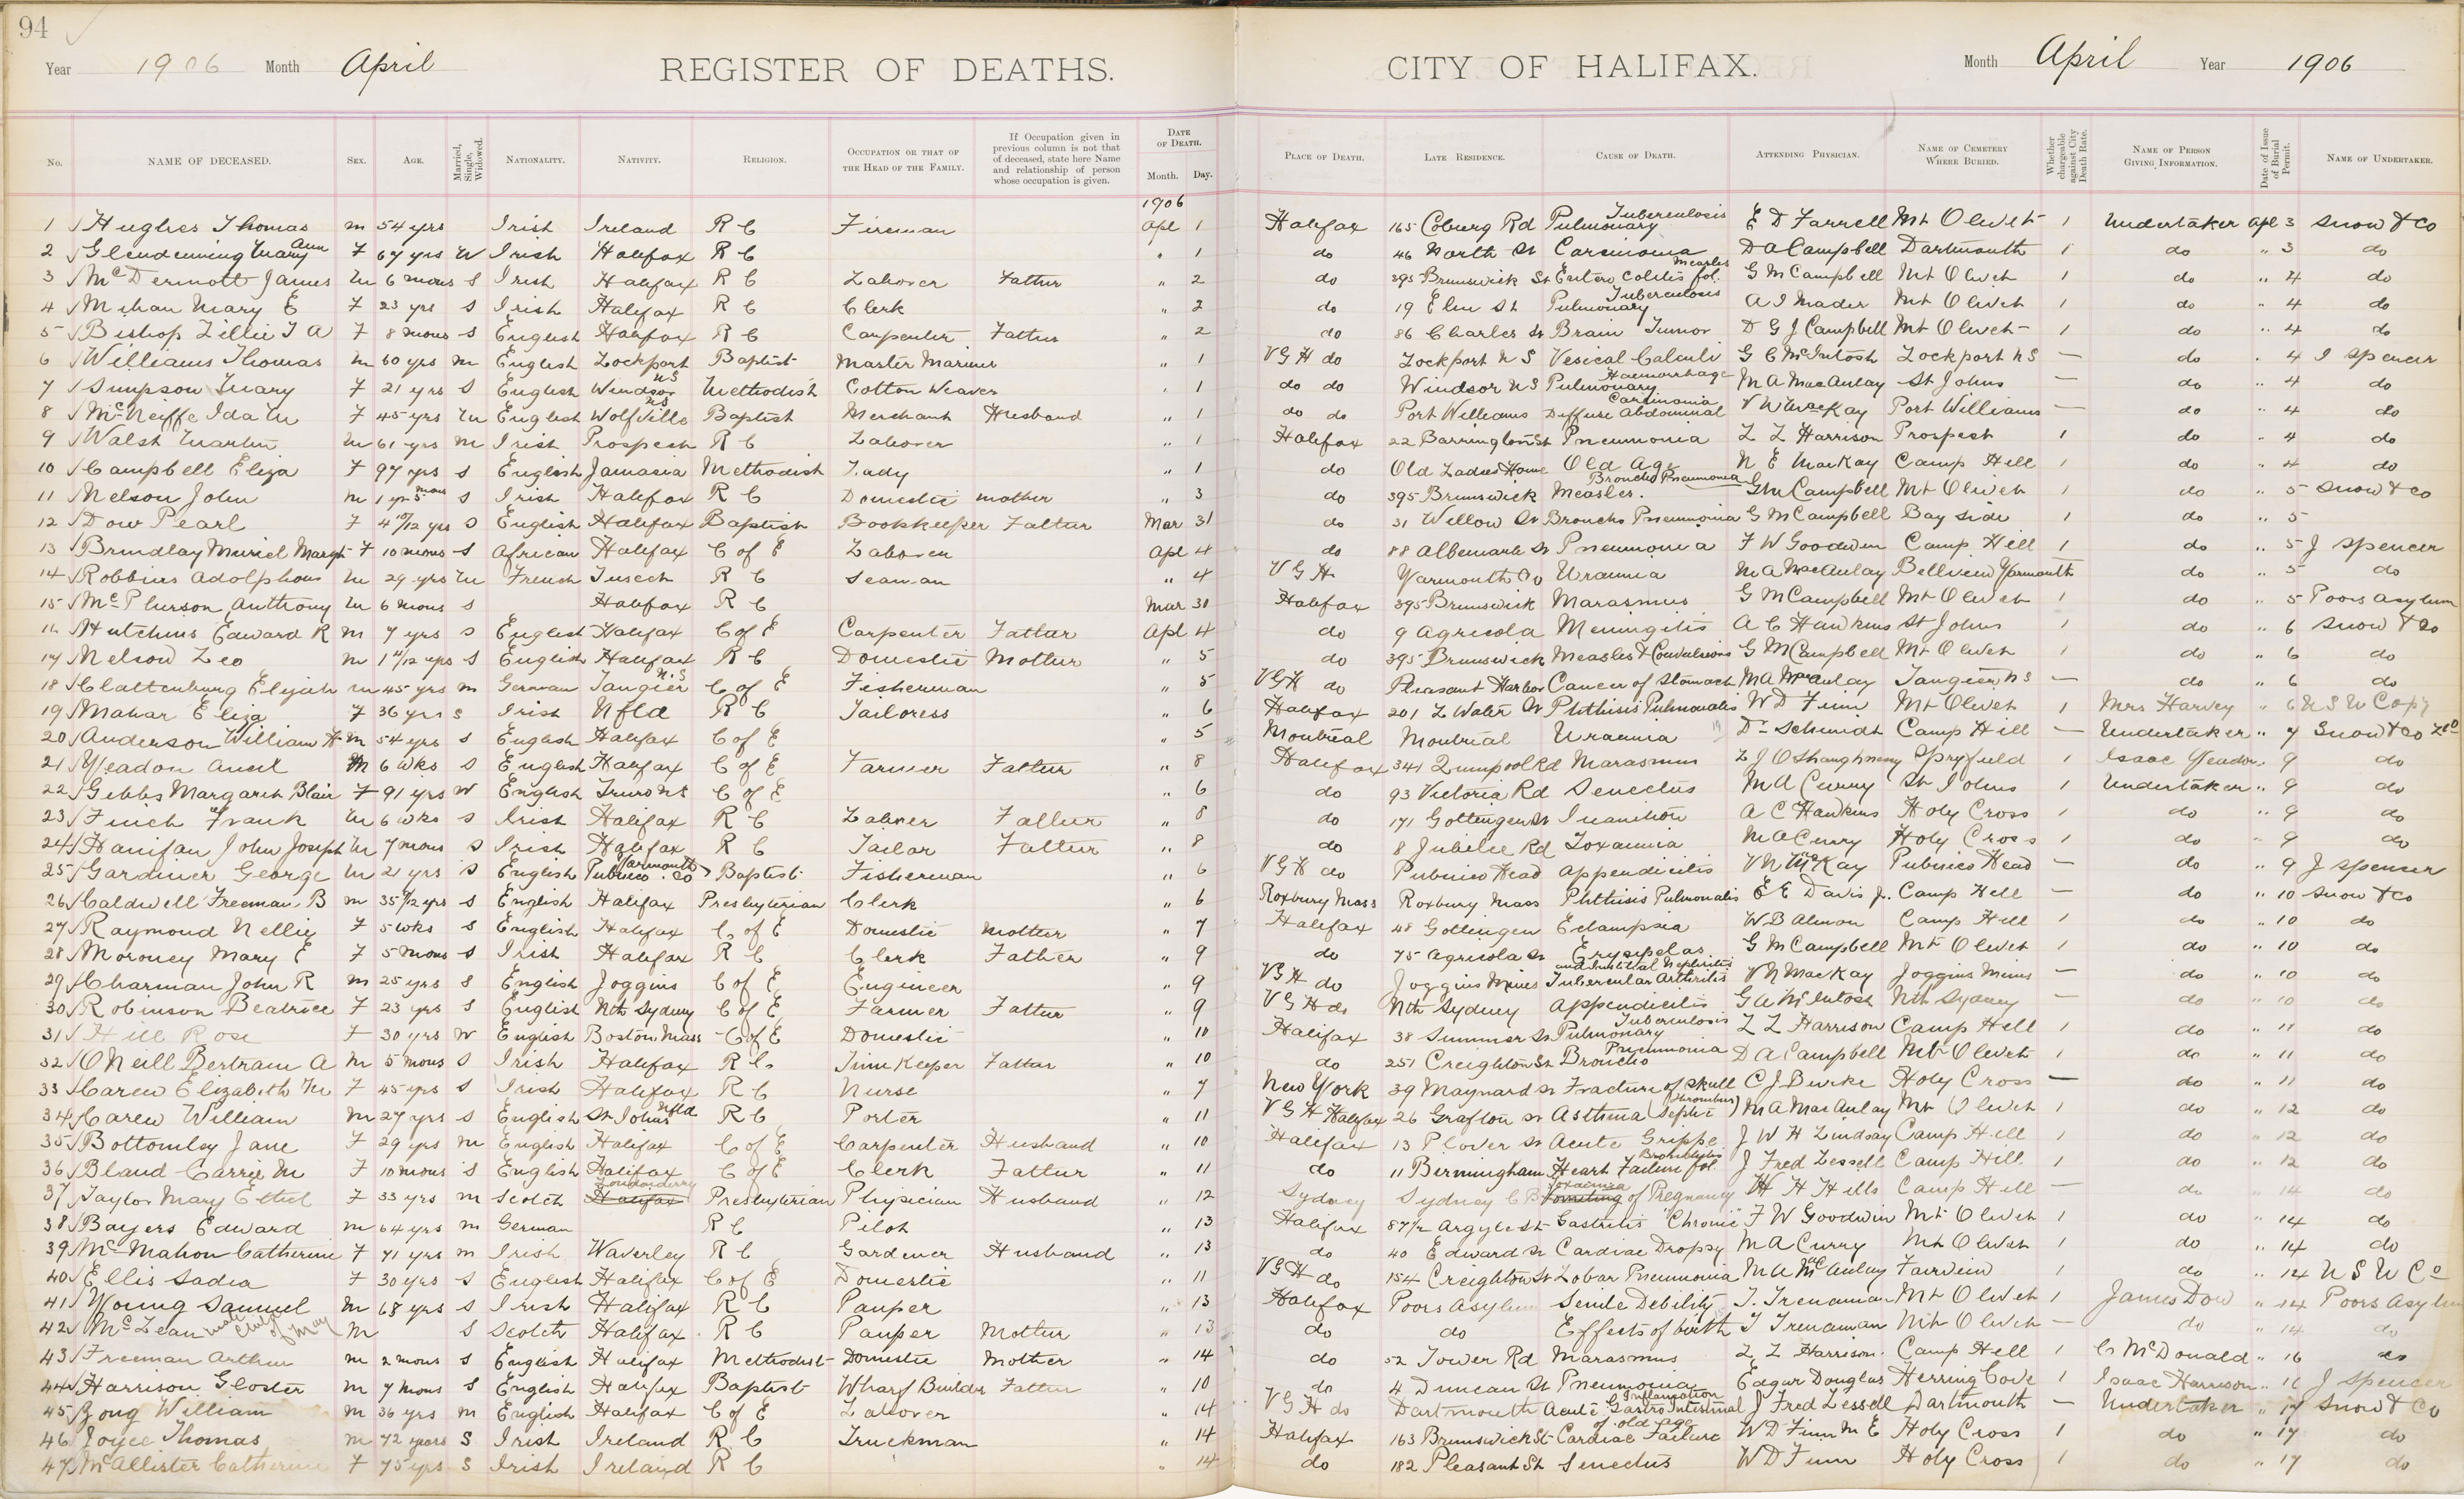 94
Year 1906 Month April REGISTER OF DEATHS. CITY OF HALIFAX. Month April Year 1906
No. NAME OF DECEASED. SEX. AGE. Married, Single, Widowed. NATIONALITY. NATIVITY. RELIGION. OCCUPATION OR THAT OF THE HEAD OF THE FAMILY. If Occupation given in previous column is not that of deceased, state here Name and relationship of person whose occupation is given. DATE OF DEATH. Month. Day. PLACE OF DEATH. LATE RESIDENCE. CAUSE OF DEATH. ATTENDING PHYSICIAN. NAME OF CEMETERY WHERE BURIED. Whether chargeable against City Death Rate. NAME OF PERSON GIVING INFORMATION. Date of Issue of Burial Permit. NAME OF UNDERTAKER.
1906
1 Hughes Thomas m 54 yrs Irish Ireland R C Fireman Apl 1 Halifax 165 Coburg Rd Pulmonary Tuberculosis E D Farrell Mt Olivet 1 Undertaker Apl 3 Snow & Co
2 Glendenning Mary Ann F 67 yrs W Irish Halifax R C " 1 do 46 North St Carcinoma D A Campbell Dartmouth 1 do " 3 do
3 McDermott James M 6 mons S Irish Halifax R C Laborer Father " 2 do 395 Brunswick St Entero Colitis fol. Measles G M Campbell Mt Olivet 1 do " 4 do
4 Mihan Mary E F 23 yrs S Irish Halifax R C Clerk " 2 do 19 Elm St Pulmonary Tuberculosis A I Mader Mt Olivet 1 do " 4 do
5 Bishop Lillie T A F 8 mons S English Halifax R C Carpenter Father " 2 do 86 Charles St Brain Tumor D G J Campbell Mt Olivet 1 do " 4 do
6 Williams Thomas M 60 yrs m English Lockport Baptist Master Mariner " 1 V G H do Lockport N S Vesical Calculi G C McIntosh Lockport N S — do " 4 J Spencer
7 Simpson Mary F 21 yrs S English Windsor N S Methodist Cotton Weaver " 1 do do Windsor N S Pulmonary Haemorrhage M A MacAulay St Johns — do " 4 do
8 McNeiffe Ida M F 45 yrs M English Wolfville N S Baptist Merchant Husband " 1 do do Port Williams Diffuse Abdominal Carcinoma V N MacKay Port Williams — do " 4 do
9 Walsh Martin M 61 yrs M Irish Prospect R C Laborer " 1 Halifax 22 Barrington St Pneumonia L L Harrison Prospect 1 do " 4 do
10 Campbell Eliza F 97 yrs S English Jamacia Methodist Lady " 1 do Old Ladies Home Old Age N E MacKay Camp Hill 1 do " 4 do
11 Nelson John M 1 yr 5 mons S Irish Halifax R C Domestic Mother " 3 do 395 Brunswick Measles. Broncho Pneumonia G M Campbell Mt Olivet 1 do " 5 Snow & Co
12 Dow Pearl F 4 10/12 yrs S English Halifax Baptist Bookkeeper Father Mar 31 do 31 Willow St Broncho Pneumonia G M Campbell Bay Side 1 do " 5
13 Brindlay Muriel Margt F 10 mons S African Halifax C of E Laborer Apl 4 do 88 Albemarle St Pneumonia F W Goodwin Camp Hill 1 do " 5 J Spencer
14 Robbins Adolphous M 29 yrs M French Tusech R C Seaman " 4 V G H Yarmouth Co Uraemia M A MacAulay Bellvein Yarmouth do " 5 do
15 McPhersson Anthony M 6 mons S Halifax R C Mar 30 Halifax 395 Brunswick Marasmus G M Campbell Mt Olivet 1 do " 5 Poors Asylum
16 Hutchins Edward R M 7 yrs S English Halifax C of E Carpenter Father Apl 4 do 9 Agricola Meningitis A C Hawkins St Johns 1 do " 6 Snow & Co
17 Nelson Leo M 1 11/12 yrs S English Halifax R C Domestic Mother " 5 do 395 Brunswick Measles & Convulsions G M Campbell Mt Olivet 1 do " 6 do
18 Clattenburg Elijah M 45 yrs M German Tangier N.S C of E Fisherman " 5 V G H do Pleasant Harbor Cancer of Stomach M A MacAulay Tangier N S — do " 6 do
19 Mahar Eliza F 36 yrs S Irish Nfld R C Tailoress " 6 Halifax 201 L Water St Phthisis Pulmonalis W D Finn Mt Olivet 1 Mrs Harvey " 6 N S U Copy
20 Anderson William H M 54 yrs S English Halifax C of E " 5 Montreal Montreal Uraemia Dr Schmidt Camp Hill — Undertaker " 7 Snow & Co Ltd
21 Yeadon Ancil M 6 wks S English Halifax C of E Farmer Father " 8 Halifax 341 Quinpool Rd Marasmus L J O Shaughnessy Spryfield 1 Isaac Yeadon " 9 do
22 Gibbs Margaret Blair F 91 yrs W English Truro N S C of E " 6 do 93 Victoria Rd Senectus M A Curry St Johns 1 Undertaker " 9 do
23 Finch Frank M 6 wks S Irish Halifax R C Laborer Father " 8 do 171 Gottingen St Inanition A C Hawkins Holy Cross 1 do " 9 do
24 Hanifan John Joseph M 7 mons S Irish Halifax R C Tailor Father " 8 do 8 Jubilee Rd Toxaemia M A Curry Holy Cross 1 do " 9 do
25 Gardiner George M 21 yrs S English Pubnico Yarmouth Co Baptist Fisherman " 6 V G H do Pubnico Head Appendicitis V N MacKay Pubnico Head — do " 9 J Spencer
26 Caldwell Freeman. B M 35 yrs S English Halifax Presbyterian Clerk " 6 Roxbury Mass Roxbury Mass Phthisis Pulmonalis E E Davis Jr. Camp Hill — do " 10 Snow & Co
27 Raymond Nellie F 5 wks S English Halifax C. of E Domestic Mother " 7 Halifax 48 Gottingen Eclampsia W B Almon Camp Hill 1 do " 10 do
28 Moroney Mary E F 5 mons S Irish Halifax R C Clerk Father " 9 do 75 Agricola St Erysipelas G M Campbell Mt Olivet 1 do " 10 do
29 Charman John R M 25 yrs S English Joggins C of E Engineer " 9 V G H do Joggins Mines Tubercular Arthritis and Nephritis V N MacKay Joggins Mines — do " 10 do
30 Robinson Beatrice F 23 yrs S English Nth Sydney C of E Farmer Father " 9 V G H do Nth Sydney Appendicitis G A McIntosh Nth Sydney — do " 10 do
31 Hill Rose F 30 yrs W English Boston Mass C of E Domestic " 10 Halifax 38 Summer St Pulmonary Tuberculosis L L Harrison Camp Hill 1 do " 11 do
32 O Neill Bertram A M 5 mons S Irish Halifax R C. Time Keeper Father " 10 do 251 Creighton St Broncho Pneumonia D A Campbell Mt Olivet 1 do " 11 do
33 Carew Elizabeth M F 45 yrs S Irish Halifax R C Nurse " 7 New York 39 Maynard St Fracture of Skull C J Burke Holy Cross — do " 11 do
34 Carew William M 27 yrs S English St Johns Nfld R C Porter " 11 V G H Halifax 26 Grafton St Asthma (Septic Thrombus) M A MacAulay Mt Olivet 1 do " 12 do
35 Bottomley Jane F 29 yrs M English Halifax C of E Carpenter Husband " 10 Halifax 13 Plover St Acute Grippe. J W H Lindsay Camp Hill 1 do " 12 do
36 Bland Carrie M F 10 mons S English Halifax C of E Clerk Father " 11 do 11 Birmingham Heart Failure fol. Bronchitis J Fred Lessell Camp Hill. 1 do " 12 do
37 Taylor Mary Ethel F 33 yrs M Scotch Halifax Londonderry Presbyterian Physician Husband " 12 Sydney Sydney C B Vomiting Toxaemia of Pregnancy W H Hills Camp Hill — do " 14 do
38 Bayers Edward M 64 yrs M German R C Pilot " 13 Halifax 87 1/2 Argyle St Gastritis "Chronic" F W Goodwin Mt Olivet 1 do " 14 do
39 McMahon Catherine F 71 yrs M Irish Waverley R C Gardener Husband " 13 do 40 Edward St Cardiac Dropsy M A Curry Mt Olivet 1 do " 14 do
40 Ellis Sadia F 30 yrs S English Halifax C of E Domestic " 11 V G H do 154 Creighton St Lobar Pneumonia M A MacAulay Fairview 1 do " 14 N S U Co
41 Young Samuel M 68 yrs S Irish Halifax R C Pauper " 13 Halifax Poors Asylum Senile Debility T. Trenaman Mt Olivet 1 James Dow " 14 Poors Asylum
42 McLean male child of May M S Scotch Halifax R C Pauper Mother " 13 do do Effects of birth T Trenaman Mt Olivet — do " 14 do
43 Freeman Arthur M 2 mons S English Halifax Methodist Domestic Mother " 14 do 52 Tower Rd Marasmus L L Harrison. Camp Hill 1 C McDonald " 16 do
44 Harrison Gloster M 7 mons S English Halifax Baptist Wharf Builder Father " 10 do 4 Duncan St Pneumonia Edgar Douglas Herring Cove 1 Isaac Harrison " 16 J Spencer
45 Zong William M 36 yrs M English Halifax C of E Laborer " 14 V G H do Dartmouth Acute Gastro Intestinal Inflamation J Fred Lessell Dartmouth — Undertaker " 17 Snow & Co
46 Joyce Thomas M 72 years S Irish Ireland R C Truckman " 14 Halifax 163 Brunswick St Cardiac Failure of old age W D Finn M E Holy Cross 1 do " 17 do
47 McAllister Catherine F 75 yrs S Irish Ireland R C " 14 do 182 Pleasant St Senectus W D Finn Holy Cross 1 do " 17 do